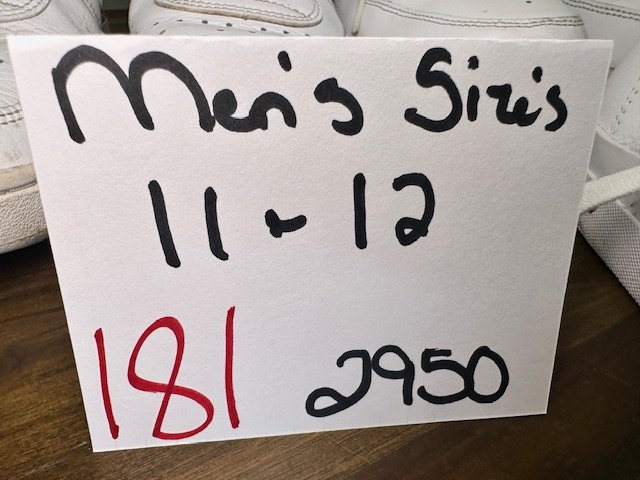 Men's Size's
11 - 12
181 2950